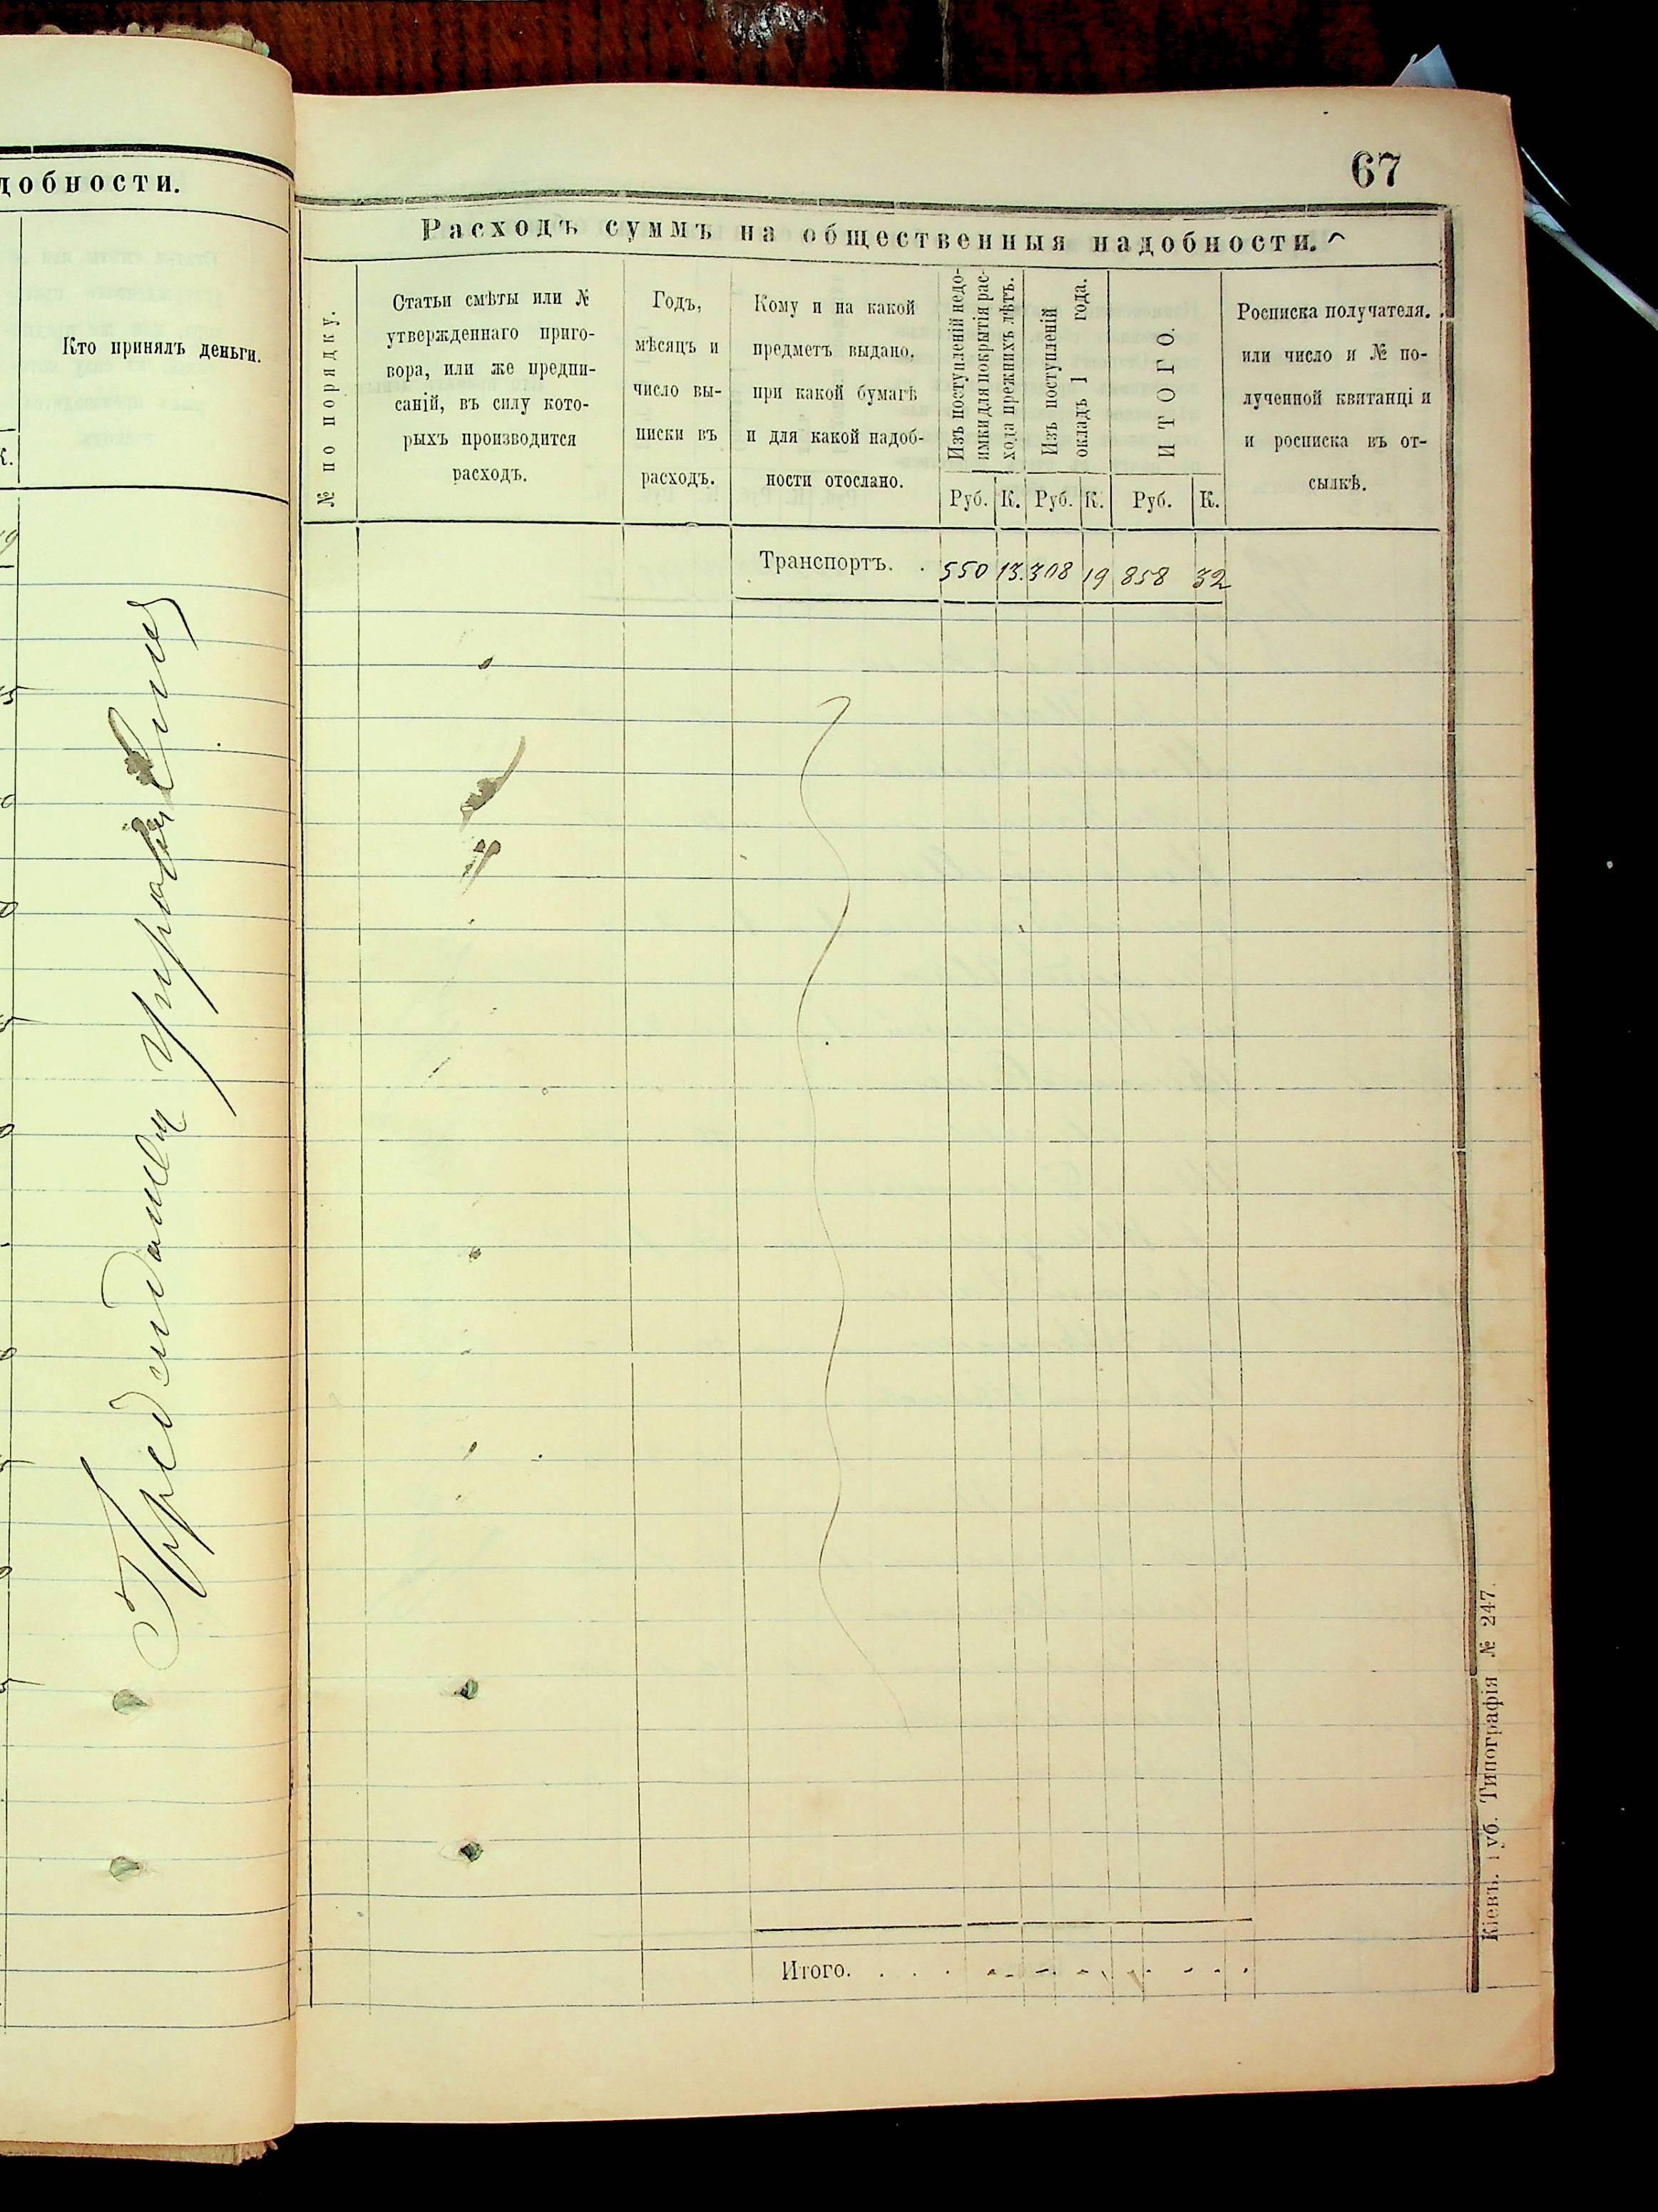 добности.
Кто принялъ деньги.
К.
67
Расходъ суммъ на общественныя надобности.
№ по порядку.
Статьи смѣты или №
утвержденнаго приго-
вора, или же предпи-
саній, въ силу кото-
рыхъ производится
расходъ.
Годъ,
мѣсяцъ и
число вы-
писки въ
расходъ.
Кому и на какой
предметъ выдано,
при какой бумагѣ
и для какой надоб-
ности отослано.
Изъ поступленій недо-
имки для покрытія рас-
хода прежнихъ лѣтъ.
Изъ поступленій
окладъ 1 года.
ИТОГО.
Росписка получателя,
или число и № по-
лученной квитанціи
и росписка въ от-
сылкѣ.
Руб. К. Руб. К. Руб. К.
Транспортъ. . 550 13. 308 19 858 32
Итого. . . .
Кіевъ. Губ. Типографія № 247.